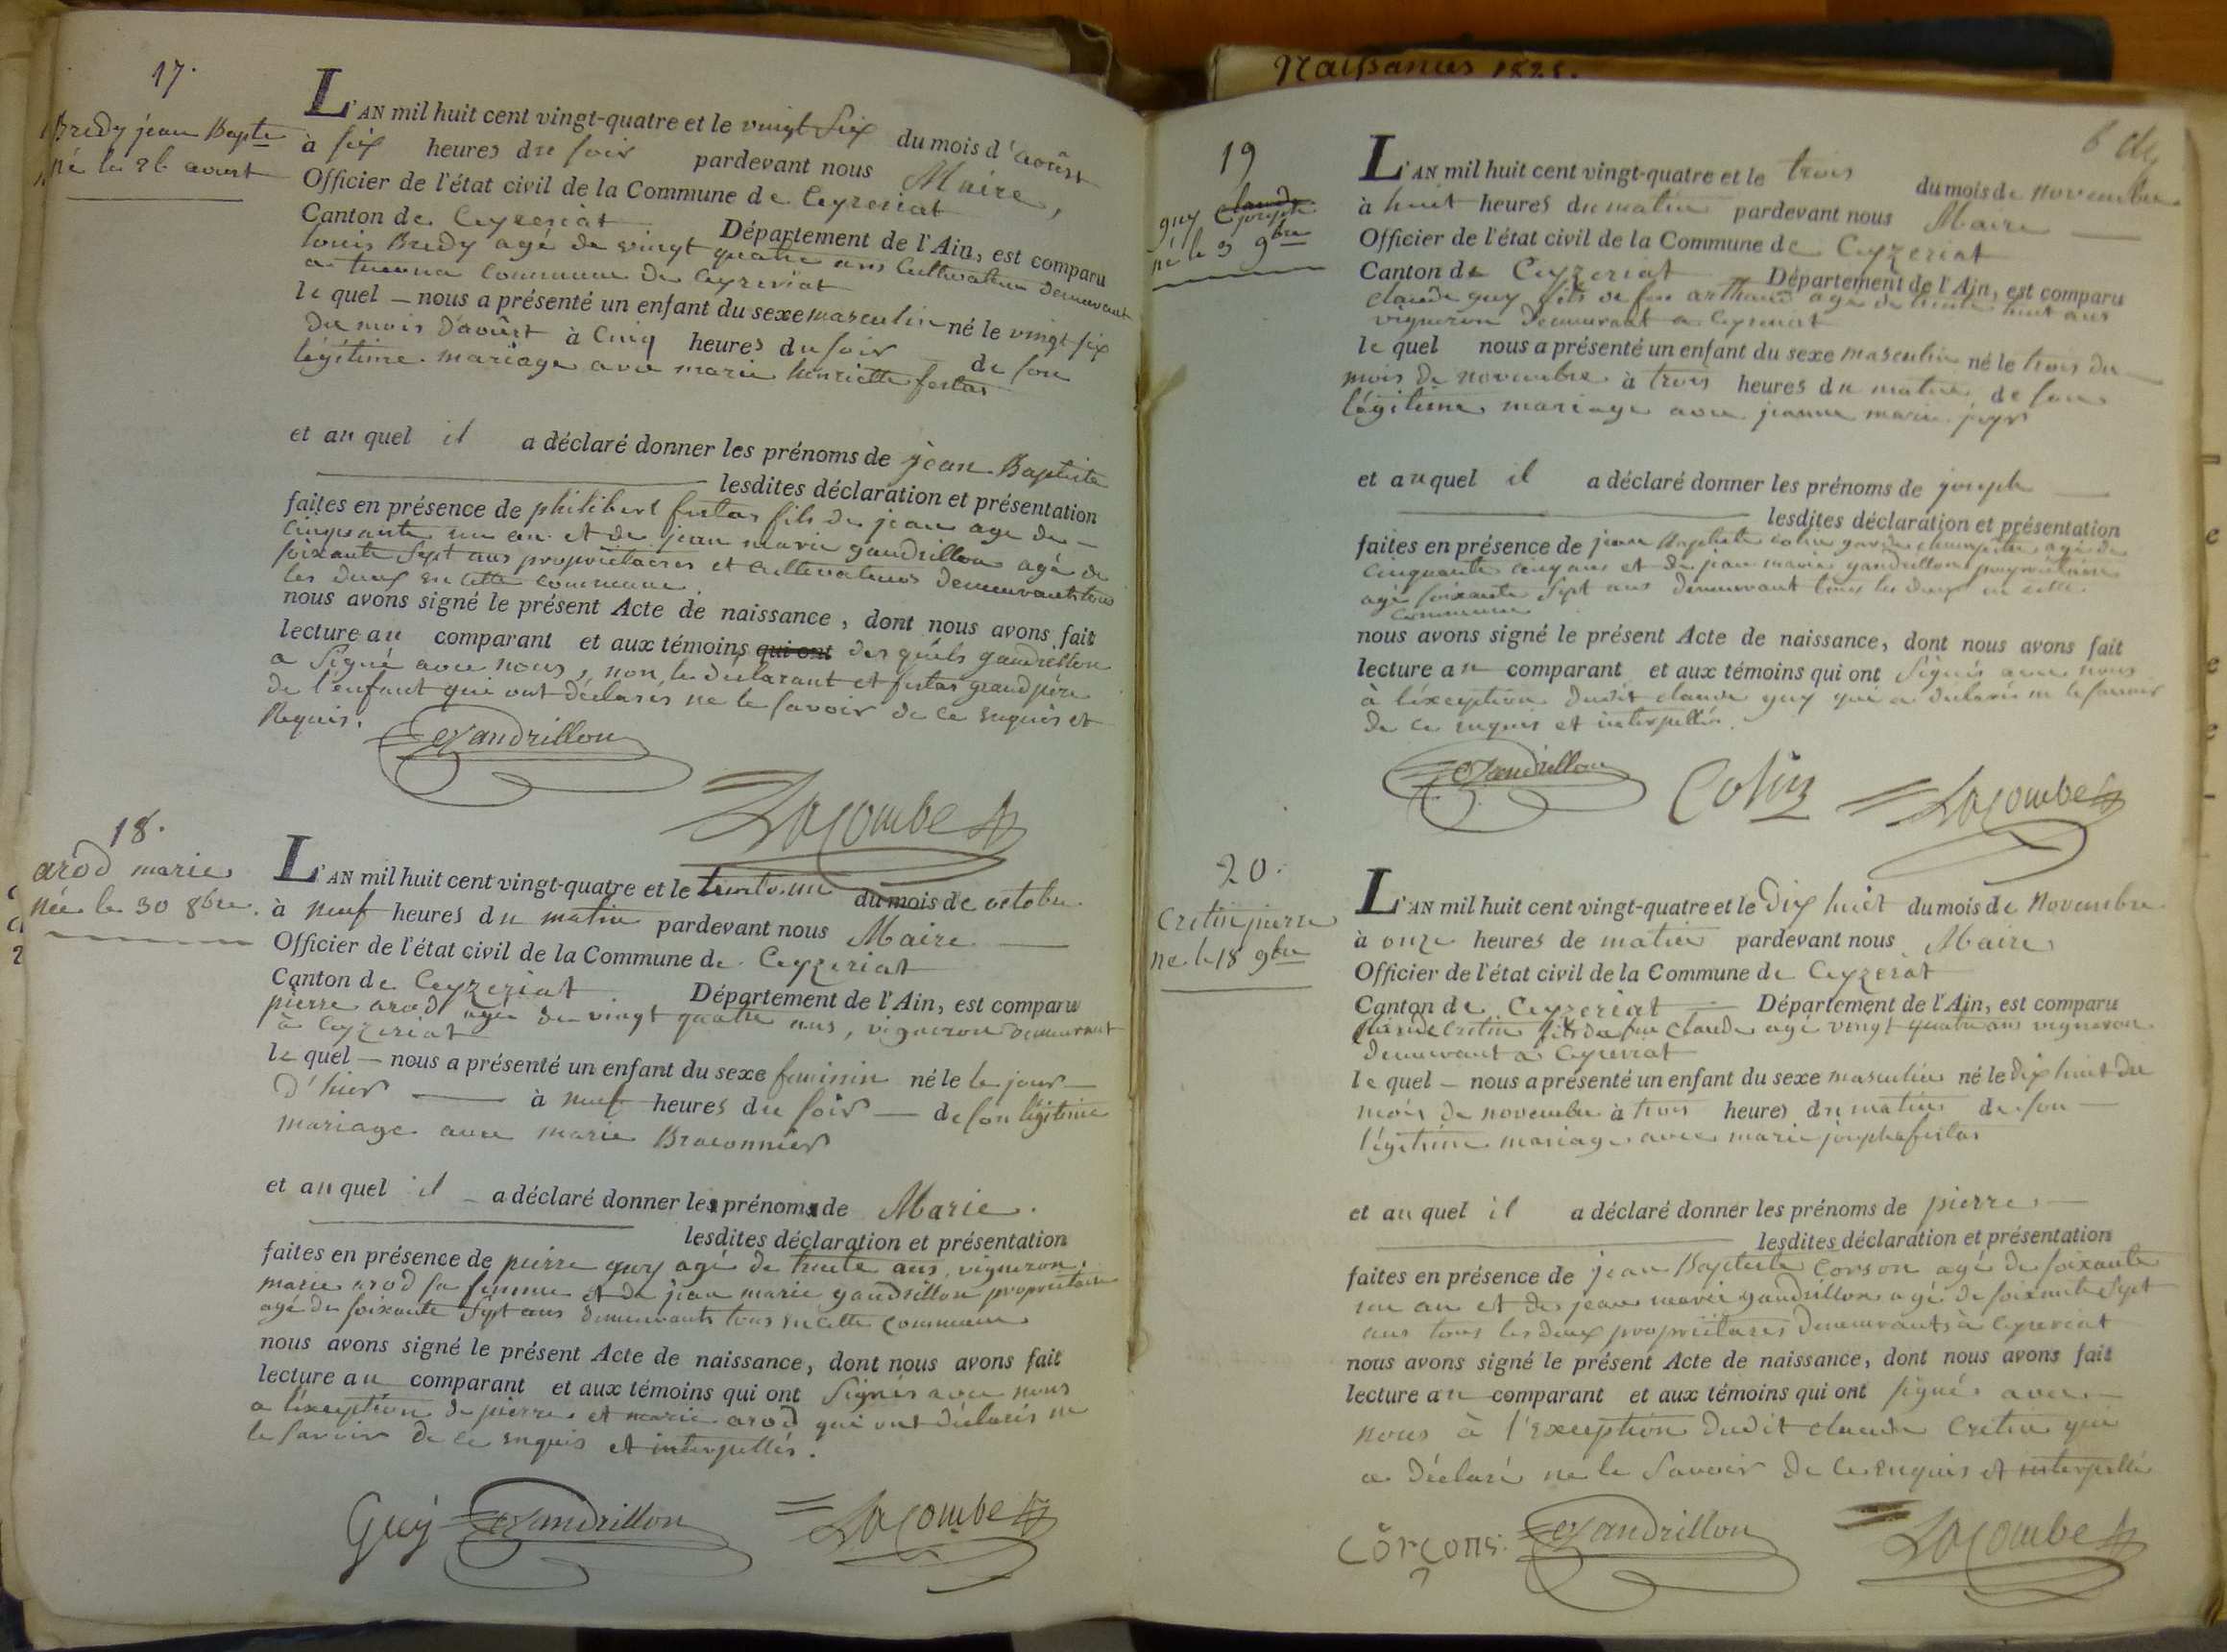 17.
Bredy jean Bapte
né le 26 aoust
L'AN mil huit cent vingt-quatre et le vingt six du mois d'aoûst
à six heures du soir pardevant nous Maire,
Officier de l'état civil de la Commune de Ceyzeriat
Canton de Ceyzeriat Département de l'Ain, est comparu
louis Bredy agé de vingt quatre ans Cultivateur demeurant
a commune de Ceyzeriat
le quel — nous a présenté un enfant du sexe masculin né le vingt six
du mois d'aoûst à Cinq heures du soir de son
légitime mariage avec marie henriette festas
et au quel il a déclaré donner les prénoms de jean Baptiste
lesdites déclaration et présentation
faites en présence de philibert festas fils de jean age de —
Cinquante un an et de jean marie gandrillon agé de
soixante sept ans propriétaires et cultivateurs demeurants tous
les deux en cette commune.
nous avons signé le présent Acte de naissance, dont nous avons fait
lecture au comparant et aux témoins qui ont des quels gandrillon
a signé avec nous, non le déclarant et festas grand père
de l'enfant qui ont déclarés ne le savoir de ce enquis et
Requis.
Gandrillon
Lacombe
18.
arod marie
née le 30 8bre.
L'AN mil huit cent vingt-quatre et le trente un du mois de octobre.
à neuf heures du matin pardevant nous Maire —
Officier de l'état civil de la Commune de Ceyzeriat
Canton de Ceyzeriat Département de l'Ain, est comparu
pierre arod agé de vingt quatre ans, vigneron demeurant
à Ceyzeriat
le quel — nous a présenté un enfant du sexe feminin né le le jour —
d'hier — à neuf heures du soir — de son légitime
mariage avec marie Braconnier
et au quel il — a déclaré donner les prénoms de Marie.
lesdites déclaration et présentation
faites en présence de pierre guy agé de trente ans, vigneron,
marie arod sa femme et de jean marie gandrillon propriétaire
agé de soixante sept ans demeurants tous en cette commune
nous avons signé le présent Acte de naissance, dont nous avons fait
lecture au comparant et aux témoins qui ont signés avec nous
a l'exception de pierre et marie arod qui ont déclarés ne
le savoir de ce enquis et interpellés.
Guy Gandrillon Lacombe
Naissances 1825.
19
guy claude
joseph
né le 3 9bre
L'AN mil huit cent vingt-quatre et le trois du mois de novembre
à huit heures du matin pardevant nous Maire —
Officier de l'état civil de la Commune de Ceyzeriat
Canton de Ceyzeriat Département de l'Ain, est comparu
claude guy fils de feu arthaud agé de trente huit ans
vigneron demeurant a Ceyzeriat
le quel nous a présenté un enfant du sexe masculin né le trois du —
mois de novembre à trois heures du matin de son
légitime mariage avec jeanne marie
et au quel il a déclaré donner les prénoms de joseph —
lesdites déclaration et présentation
faites en présence de jean Baptiste colin garde champetre agé de
cinquante cinq ans et de jean marie gandrillon propriétaire
agé soixante sept ans demeurant tous les deux en cette
commune
nous avons signé le présent Acte de naissance, dont nous avons fait
lecture au comparant et aux témoins qui ont signés avec nous
à l'exception dudit claude guy qui a déclaré ne le savoir
de ce enquis et interpellé.
Gandrillon Colin Lacombe
20.
Cretin pierre
né le 18 9bre
L'AN mil huit cent vingt-quatre et le dix huit du mois de Novembre
à onze heures de matin pardevant nous Maire
Officier de l'état civil de la Commune de Ceyzeriat
Canton de Ceyzeriat — Département de l'Ain, est comparu
claude cretin fils de feu Claude agé vingt quatre ans vigneron
demeurant a Ceyzeriat
le quel — nous a présenté un enfant du sexe masculin né le dix huit du
mois de novembre à trois heures du matin de son —
légitime mariage avec marie josephe festas
et au quel il a déclaré donner les prénoms de pierre. —
lesdites déclaration et présentation
faites en présence de jean Baptiste Corson agé de soixante
un an et de jean marie gandrillon agé de soixante sept
ans tous les deux propriétaires demeurants à Ceyzeriat
nous avons signé le présent Acte de naissance, dont nous avons fait
lecture au comparant et aux témoins qui ont signés avec —
nous à l'exception dudit claude Cretin qui
a déclaré ne le savoir de ce enquis et interpellé
Corçons Gandrillon Lacombe